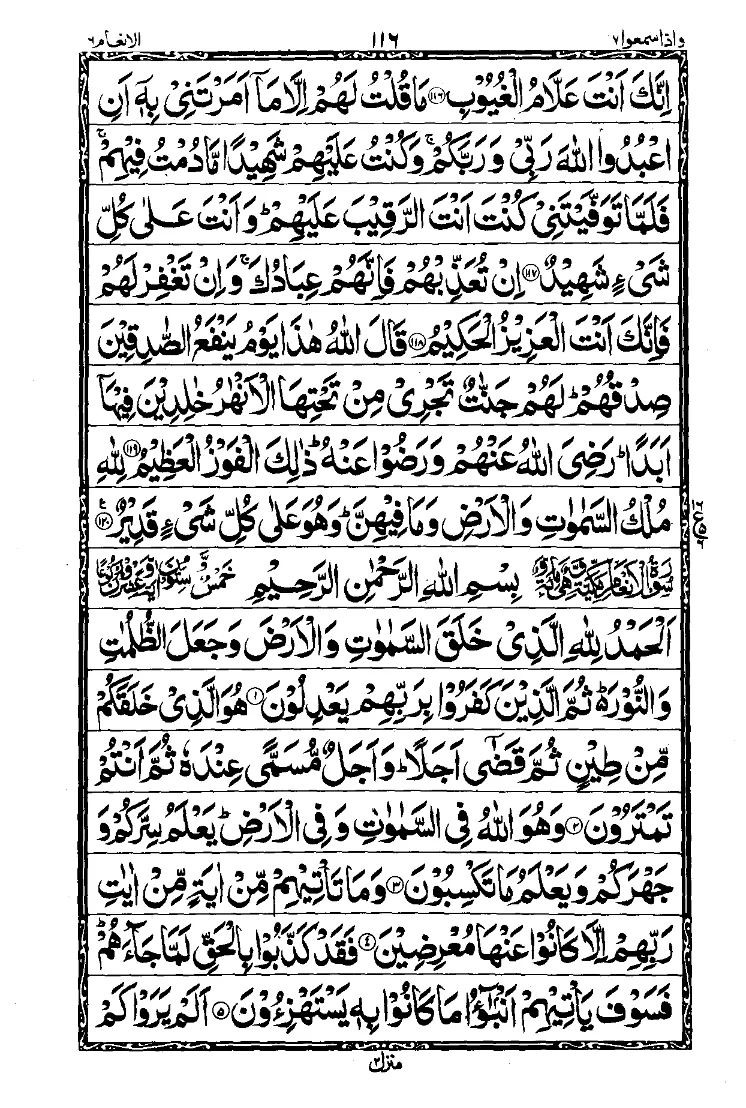 واذاسمعوا۷ ۱۱۶ الانعام۶
اِنَّكَ اَنْتَ عَلَّامُ الْغُيُوْبِ ۝۱۱۶ مَا قُلْتُ لَهُمْ اِلَّا مَاۤ اَمَرْتَنِىْ بِهٖۤ اَنِ
اعْبُدُوا اللّٰهَ رَبِّىْ وَرَبَّكُمْ ۚ وَكُنْتُ عَلَيْهِمْ شَهِيْدًا مَّا دُمْتُ فِيْهِمْ ۚ
فَلَمَّا تَوَفَّيْتَنِىْ كُنْتَ اَنْتَ الرَّقِيْبَ عَلَيْهِمْ ؕ وَاَنْتَ عَلٰى كُلِّ
شَىْءٍ شَهِيْدٌ ۝۱۱۷ اِنْ تُعَذِّبْهُمْ فَاِنَّهُمْ عِبَادُكَ ۚ وَاِنْ تَغْفِرْ لَهُمْ
فَاِنَّكَ اَنْتَ الْعَزِيْزُ الْحَكِيْمُ ۝۱۱۸ قَالَ اللّٰهُ هٰذَا يَوْمُ يَنْفَعُ الصّٰدِقِيْنَ
صِدْقُهُمْ ؕ لَهُمْ جَنّٰتٌ تَجْرِىْ مِنْ تَحْتِهَا الْاَنْهٰرُ خٰلِدِيْنَ فِيْهَاۤ
اَبَدًا ؕ رَضِىَ اللّٰهُ عَنْهُمْ وَرَضُوْا عَنْهُ ؕ ذٰلِكَ الْفَوْزُ الْعَظِيْمُ ۝۱۱۹ لِلّٰهِ
مُلْكُ السَّمٰوٰتِ وَالْاَرْضِ وَمَا فِيْهِنَّ ؕ وَهُوَ عَلٰى كُلِّ شَىْءٍ قَدِيْرٌ ۝۱۲۰
بِسْمِ اللّٰهِ الرَّحْمٰنِ الرَّحِيْمِ
اَلْحَمْدُ لِلّٰهِ الَّذِىْ خَلَقَ السَّمٰوٰتِ وَالْاَرْضَ وَجَعَلَ الظُّلُمٰتِ
وَالنُّوْرَ ؕ ثُمَّ الَّذِيْنَ كَفَرُوْا بِرَبِّهِمْ يَعْدِلُوْنَ ۝۱ هُوَ الَّذِىْ خَلَقَكُمْ
مِّنْ طِيْنٍ ثُمَّ قَضٰۤى اَجَلًا ؕ وَاَجَلٌ مُّسَمًّى عِنْدَهٗ ثُمَّ اَنْتُمْ
تَمْتَرُوْنَ ۝۲ وَهُوَ اللّٰهُ فِى السَّمٰوٰتِ وَفِى الْاَرْضِ ؕ يَعْلَمُ سِرَّكُمْ وَ
جَهْرَكُمْ وَيَعْلَمُ مَا تَكْسِبُوْنَ ۝۳ وَمَا تَاْتِيْهِمْ مِّنْ اٰيَةٍ مِّنْ اٰيٰتِ
رَبِّهِمْ اِلَّا كَانُوْا عَنْهَا مُعْرِضِيْنَ ۝۴ فَقَدْ كَذَّبُوْا بِالْحَقِّ لَمَّا جَآءَهُمْ ؕ
فَسَوْفَ يَاْتِيْهِمْ اَنْۢبٰٓؤُا مَا كَانُوْا بِهٖ يَسْتَهْزِءُوْنَ ۝۵ اَلَمْ يَرَوْا كَمْ
منزل۲